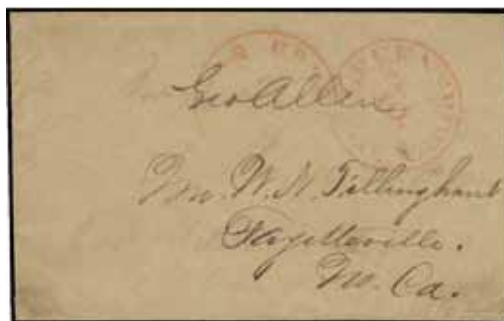 Geo Allen
Mr. W. N. Tillinghast
Fayetteville.
No. Ca.